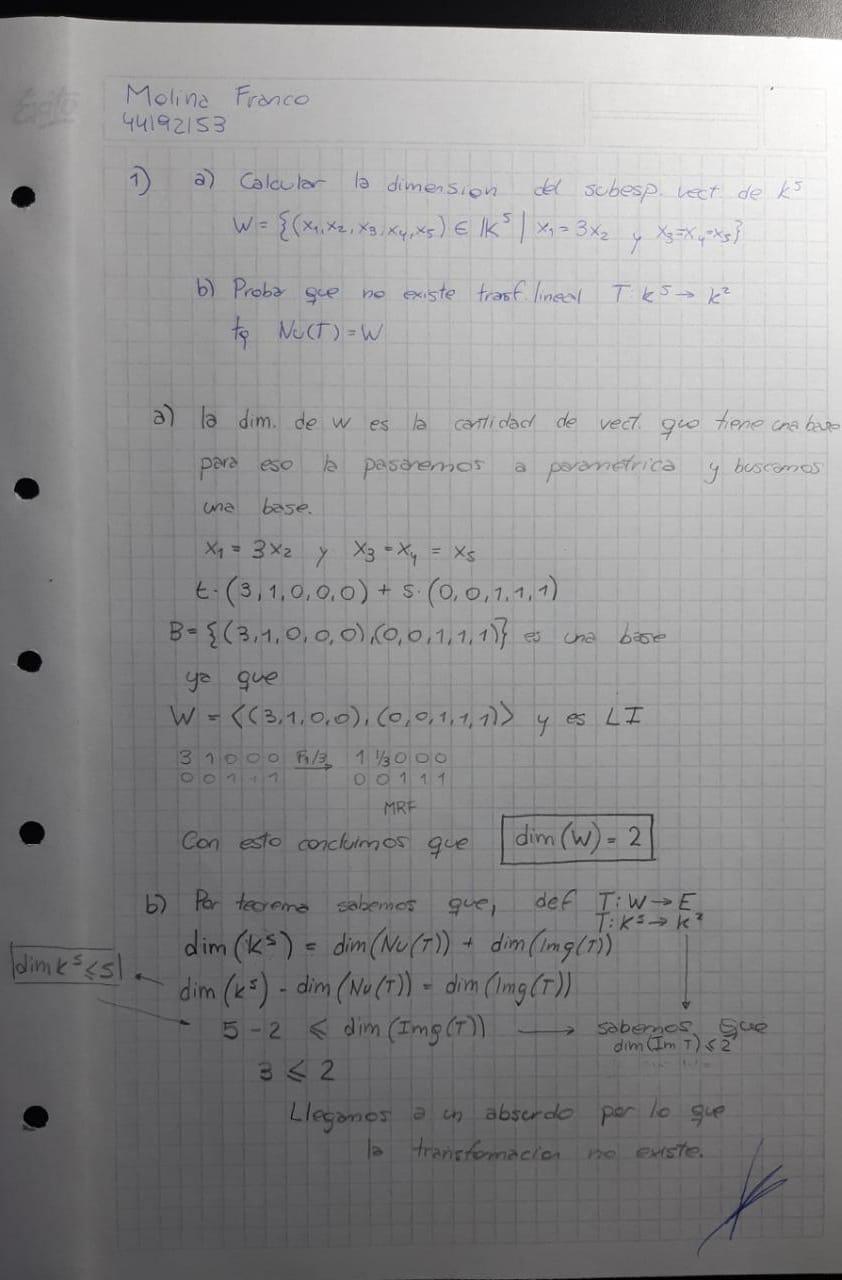 Exito
Molina Franco
44192153
1) a) Calcular la dimension del subesp. vect. de k⁵
W = {(x₁,x₂,x₃,x₄,x₅) ∈ lk⁵ | x₁ = 3x₂ y x₃=x₄=x₅}
b) Probar que no existe trasf. lineal T: k⁵ → k²
tq Nu(T) = W
a) la dim. de w es la cantidad de vect. que tiene una base
para eso la pasaremos a parametrica y buscamos
una base.
x₁ = 3x₂ y x₃ = x₄ = x₅
t·(3,1,0,0,0) + s·(0,0,1,1,1)
B = {(3,1,0,0,0),(0,0,1,1,1)} es una base
ya que
W = ⟨(3,1,0,0),(0,0,1,1,1)⟩ y es LI
3 1 0 0 0 F₁/3 → 1 1/3 0 0 0
0 0 1 1 1 0 0 1 1 1
MRF
Con esto concluimos que dim(W) = 2
b) Por teorema sabemos que, def T: W → E
T: k⁵ → k²
dim(k⁵) = dim(Nu(T)) + dim(Img(T))
dim k⁵ ≤ 5
dim(k⁵) - dim(Nu(T)) = dim(Img(T))
5 - 2 ≤ dim(Img(T)) → sabemos que
dim(Im T) ≤ 2
3 ≤ 2
Llegamos a un absurdo por lo que
la transfomacion no existe.